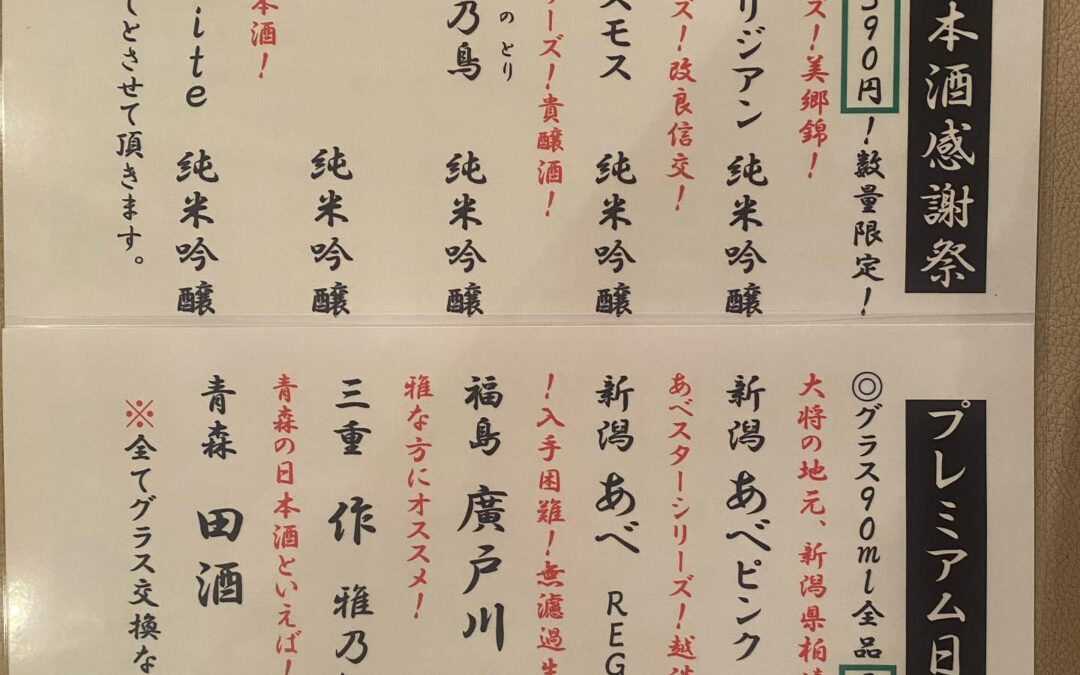 本酒感謝祭
90円！数量限定！
ズ！美郷錦！
リジアン 純米吟醸
ズ！改良信交！
スモス 純米吟醸
ーズ！貴醸酒！
のとり
乃鳥 純米吟醸
純米吟醸
本酒！
ite 純米吟醸
てとさせて頂きます。
プレミアム日
◎グラス90ml全品
大将の地元、新潟県柏崎
新潟 あべピンク
あべスターシリーズ！越
新潟 あべ REG
！入手困難！無濾過生
福島 廣戸川
雅な方にオススメ！
三重 作 雅乃
青森の日本酒といえば！
青森 田酒
※全てグラス交換な